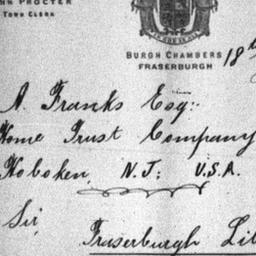 PROCTER
TOWN CLERK
BURGH CHAMBERS
FRASERBURGH
18th
A. Franks Esq:
Home Trust Company
Hoboken, N.J: U.S.A.
Sir,
Fraserburgh Lib